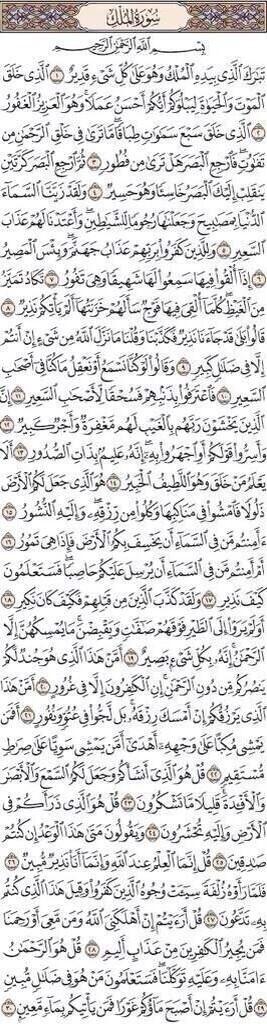 سُورَةُ المُلْكِ
بِسْمِ اللَّهِ الرَّحْمَٰنِ الرَّحِيمِ
تَبَٰرَكَ الَّذِي بِيَدِهِ الْمُلْكُ وَهُوَ عَلَىٰ كُلِّ شَيْءٍ قَدِيرٌ ١ الَّذِي خَلَقَ
الْمَوْتَ وَالْحَيَوٰةَ لِيَبْلُوَكُمْ أَيُّكُمْ أَحْسَنُ عَمَلًا وَهُوَ الْعَزِيزُ الْغَفُورُ
٢ الَّذِي خَلَقَ سَبْعَ سَمَٰوَٰتٍ طِبَاقًا مَّا تَرَىٰ فِي خَلْقِ الرَّحْمَٰنِ مِن
تَفَٰوُتٍ فَارْجِعِ الْبَصَرَ هَلْ تَرَىٰ مِن فُطُورٍ ٣ ثُمَّ ارْجِعِ الْبَصَرَ كَرَّتَيْنِ
يَنقَلِبْ إِلَيْكَ الْبَصَرُ خَاسِئًا وَهُوَ حَسِيرٌ ٤ وَلَقَدْ زَيَّنَّا السَّمَاءَ
الدُّنْيَا بِمَصَٰبِيحَ وَجَعَلْنَٰهَا رُجُومًا لِّلشَّيَٰطِينِ وَأَعْتَدْنَا لَهُمْ عَذَابَ
السَّعِيرِ ٥ وَلِلَّذِينَ كَفَرُوا بِرَبِّهِمْ عَذَابُ جَهَنَّمَ وَبِئْسَ الْمَصِيرُ
٦ إِذَا أُلْقُوا فِيهَا سَمِعُوا لَهَا شَهِيقًا وَهِيَ تَفُورُ ٧ تَكَادُ تَمَيَّزُ
مِنَ الْغَيْظِ كُلَّمَا أُلْقِيَ فِيهَا فَوْجٌ سَأَلَهُمْ خَزَنَتُهَا أَلَمْ يَأْتِكُمْ نَذِيرٌ ٨
قَالُوا بَلَىٰ قَدْ جَاءَنَا نَذِيرٌ فَكَذَّبْنَا وَقُلْنَا مَا نَزَّلَ اللَّهُ مِن شَيْءٍ إِنْ أَنتُمْ
إِلَّا فِي ضَلَٰلٍ كَبِيرٍ ٩ وَقَالُوا لَوْ كُنَّا نَسْمَعُ أَوْ نَعْقِلُ مَا كُنَّا فِي أَصْحَٰبِ
السَّعِيرِ ١٠ فَاعْتَرَفُوا بِذَنبِهِمْ فَسُحْقًا لِّأَصْحَٰبِ السَّعِيرِ ١١ إِنَّ
الَّذِينَ يَخْشَوْنَ رَبَّهُم بِالْغَيْبِ لَهُم مَّغْفِرَةٌ وَأَجْرٌ كَبِيرٌ ١٢
وَأَسِرُّوا قَوْلَكُمْ أَوِ اجْهَرُوا بِهِ إِنَّهُ عَلِيمٌ بِذَاتِ الصُّدُورِ ١٣ أَلَا
يَعْلَمُ مَنْ خَلَقَ وَهُوَ اللَّطِيفُ الْخَبِيرُ ١٤ هُوَ الَّذِي جَعَلَ لَكُمُ الْأَرْضَ
ذَلُولًا فَامْشُوا فِي مَنَاكِبِهَا وَكُلُوا مِن رِّزْقِهِ وَإِلَيْهِ النُّشُورُ ١٥
ءَأَمِنتُم مَّن فِي السَّمَاءِ أَن يَخْسِفَ بِكُمُ الْأَرْضَ فَإِذَا هِيَ تَمُورُ ١٦
أَمْ أَمِنتُم مَّن فِي السَّمَاءِ أَن يُرْسِلَ عَلَيْكُمْ حَاصِبًا فَسَتَعْلَمُونَ
كَيْفَ نَذِيرِ ١٧ وَلَقَدْ كَذَّبَ الَّذِينَ مِن قَبْلِهِمْ فَكَيْفَ كَانَ نَكِيرِ ١٨
أَوَلَمْ يَرَوْا إِلَى الطَّيْرِ فَوْقَهُمْ صَٰفَّٰتٍ وَيَقْبِضْنَ مَا يُمْسِكُهُنَّ إِلَّا
الرَّحْمَٰنُ إِنَّهُ بِكُلِّ شَيْءٍ بَصِيرٌ ١٩ أَمَّنْ هَٰذَا الَّذِي هُوَ جُندٌ لَّكُمْ
يَنصُرُكُم مِّن دُونِ الرَّحْمَٰنِ إِنِ الْكَٰفِرُونَ إِلَّا فِي غُرُورٍ ٢٠ أَمَّنْ هَٰذَا
الَّذِي يَرْزُقُكُمْ إِنْ أَمْسَكَ رِزْقَهُ بَل لَّجُّوا فِي عُتُوٍّ وَنُفُورٍ ٢١ أَفَمَن
يَمْشِي مُكِبًّا عَلَىٰ وَجْهِهِ أَهْدَىٰ أَمَّن يَمْشِي سَوِيًّا عَلَىٰ صِرَٰطٍ
مُّسْتَقِيمٍ ٢٢ قُلْ هُوَ الَّذِي أَنشَأَكُمْ وَجَعَلَ لَكُمُ السَّمْعَ وَالْأَبْصَٰرَ
وَالْأَفْـِٔدَةَ قَلِيلًا مَّا تَشْكُرُونَ ٢٣ قُلْ هُوَ الَّذِي ذَرَأَكُمْ فِي
الْأَرْضِ وَإِلَيْهِ تُحْشَرُونَ ٢٤ وَيَقُولُونَ مَتَىٰ هَٰذَا الْوَعْدُ إِن كُنتُمْ
صَٰدِقِينَ ٢٥ قُلْ إِنَّمَا الْعِلْمُ عِندَ اللَّهِ وَإِنَّمَا أَنَا نَذِيرٌ مُّبِينٌ ٢٦
فَلَمَّا رَأَوْهُ زُلْفَةً سِيـَٔتْ وُجُوهُ الَّذِينَ كَفَرُوا وَقِيلَ هَٰذَا الَّذِي كُنتُم
بِهِ تَدَّعُونَ ٢٧ قُلْ أَرَءَيْتُمْ إِنْ أَهْلَكَنِيَ اللَّهُ وَمَن مَّعِيَ أَوْ رَحِمَنَا
فَمَن يُجِيرُ الْكَٰفِرِينَ مِنْ عَذَابٍ أَلِيمٍ ٢٨ قُلْ هُوَ الرَّحْمَٰنُ
ءَامَنَّا بِهِ وَعَلَيْهِ تَوَكَّلْنَا فَسَتَعْلَمُونَ مَنْ هُوَ فِي ضَلَٰلٍ مُّبِينٍ
٢٩ قُلْ أَرَءَيْتُمْ إِنْ أَصْبَحَ مَاؤُكُمْ غَوْرًا فَمَن يَأْتِيكُم بِمَاءٍ مَّعِينٍ ٣٠